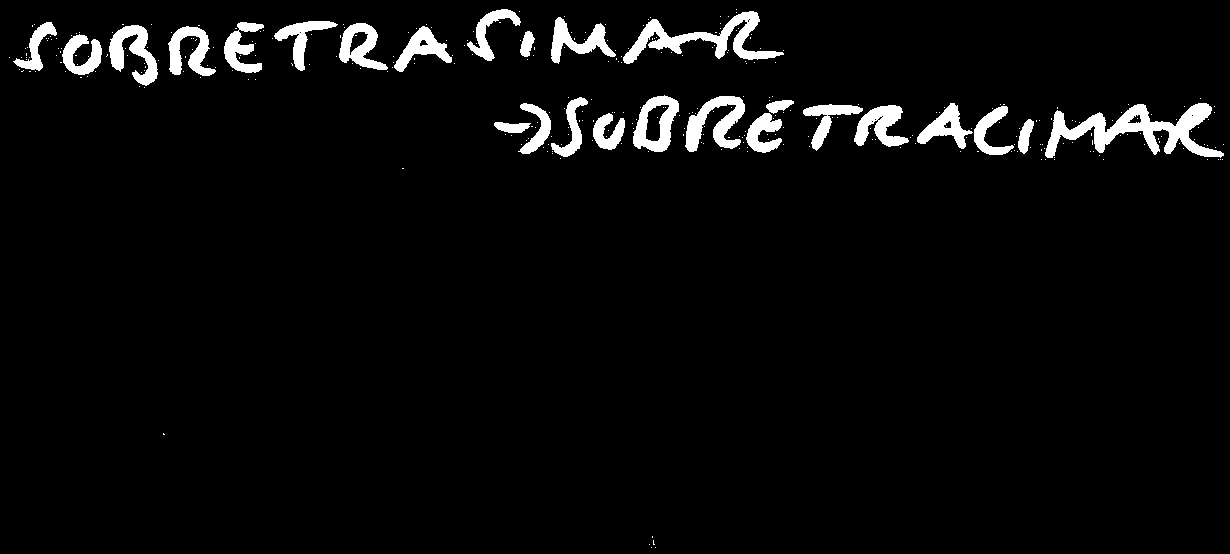 SOBRETRASIMAR
→SOBRETRACIMAR